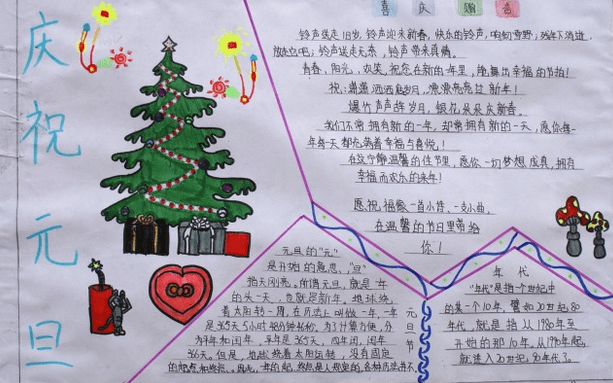 庆祝元旦
喜庆
铃声送走旧岁,铃声迎来新春,快乐的铃声,响彻
铃声送走冬, 铃声带来真情。
青春,阳光,欢笑,祝您在新的一年里,舞出幸福的节拍!
祝:潇潇洒洒 岁月,漂漂亮亮过新年!
爆竹声声 岁月,银花朵朵庆新春。
我们不常拥有新的一年,却常拥有新的一天,愿你每一
年每天都充满着幸福与喜悦!
在这宁静温馨的佳节里,愿你一切梦想成真,拥有
幸福而欢乐的来年!
愿祝福象一首小诗,一支小曲,
在温馨的节日里带给
你!
元旦的“元”
是开始的意思,“旦”
指天刚亮。所谓元旦,就是一年
的头一天,也就是新年。地球绕
着太阳转一周,在历法上叫做一年,一年
是365天5小时48分钟46秒,为了计算方便,分
为平年和闰年,平年是365天,四年闰,闰年
366天。但是,地球绕着太阳运转,没有固定
的起点和终点。
元旦节
年代
“年代”是指一个世纪中
的某一个10年,譬如20世纪80
年代,就是指从1980年至
开始的那10年,从1990年起,
就进入20世纪90年代了。